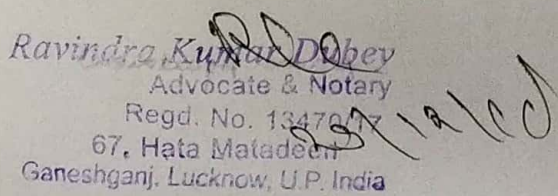 Ravindra Kumar Dubey
Advocate & Notary
Regd. No. 13470/17
67, Hata Matadeen
Ganeshganj, Lucknow, U.P. India